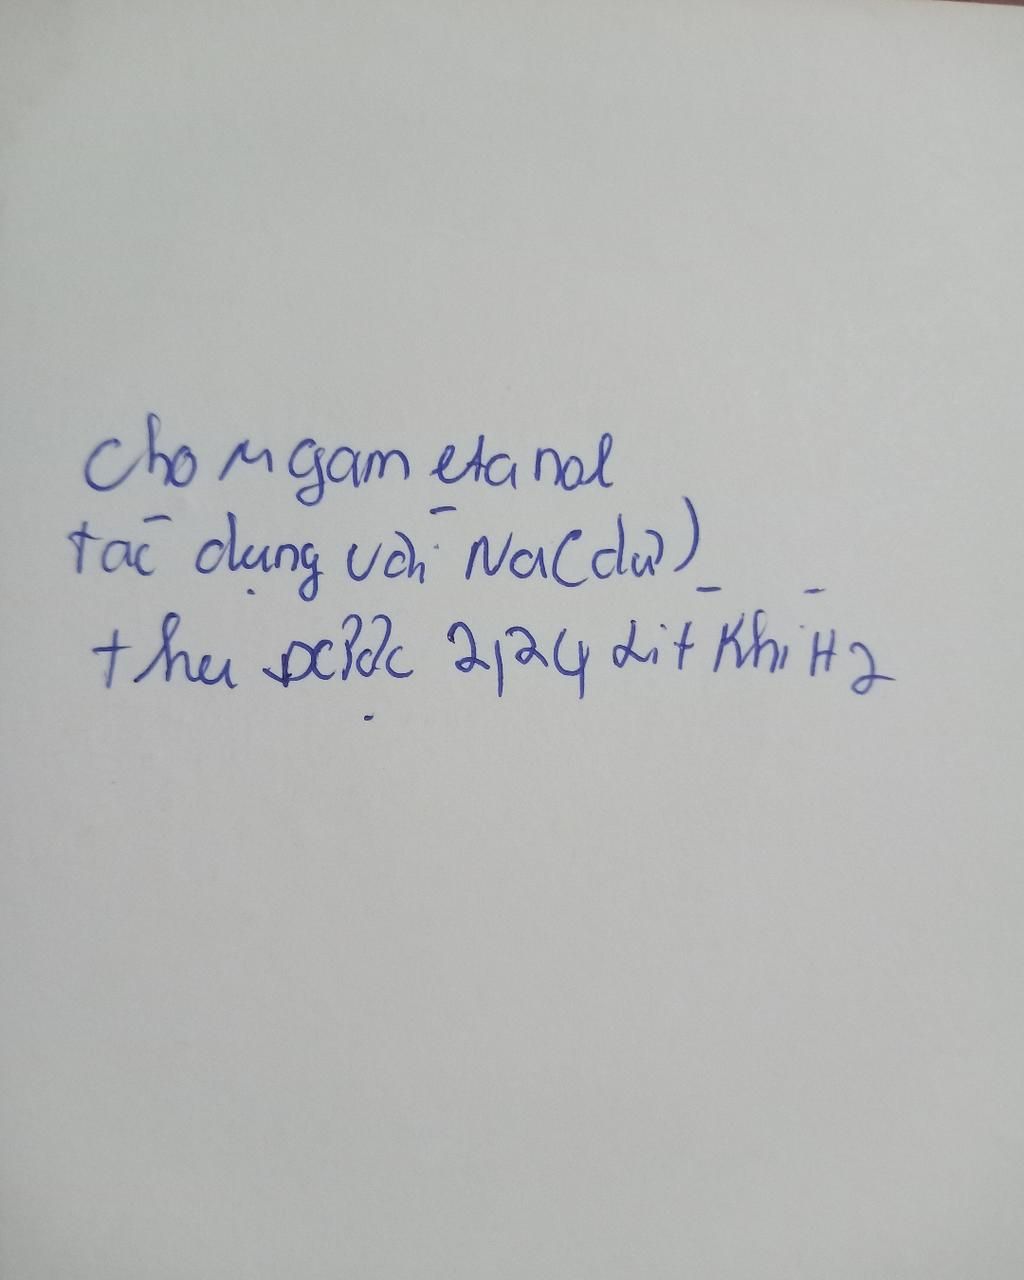 Cho m gam etanol
tác dụng với Na(dư)
thu được 2,24 lít Khí H2